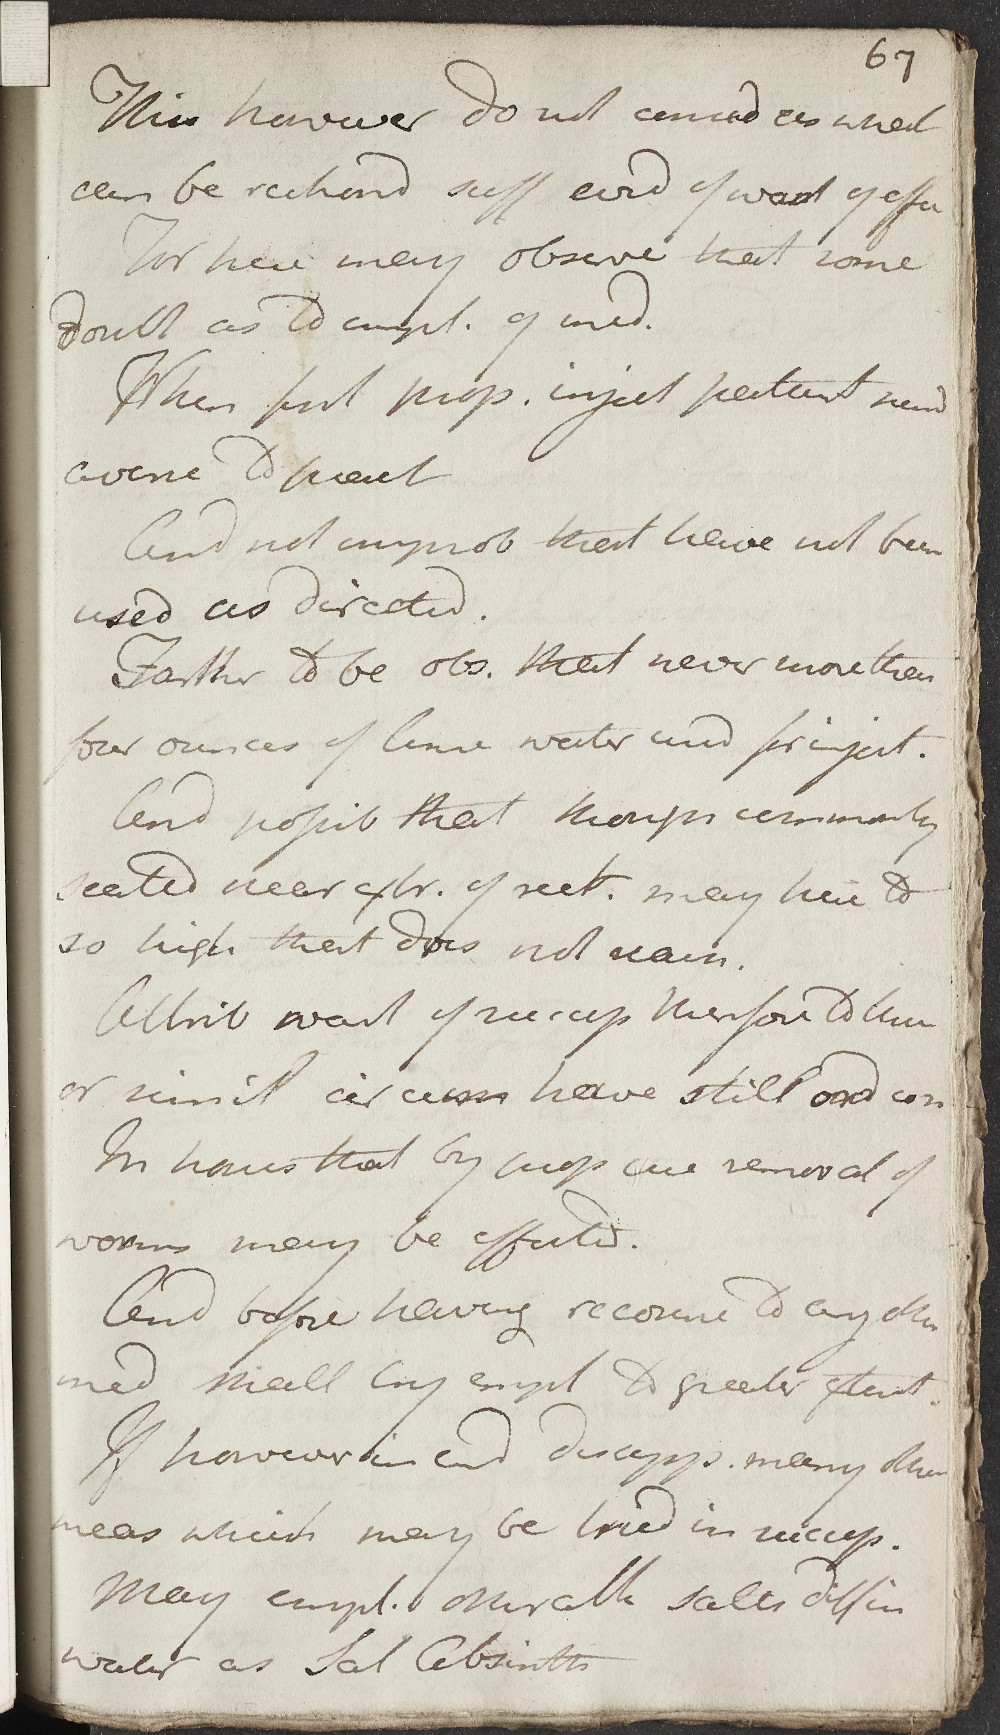 67
This however do not consid as what
can be reckond suff evid of want of effec
For here may observe that some
doubt as to empl. of med.
When first prop. inject patient seemd
averse to
And not improb that have not been
used as directed.
Farther to be obs. that never more than
four ounces of lime water used for inject.
And possib that though commonly
seated near extr. of rect. may here be
so high that does not reach.
Attrib want of success therefore to these
or simil circum have still
In hopes that by prop use removal of
worms may be effected.
And before having recourse to any other
med shall try empl to greater extent.
If however in end disapp. many other
meas which may be tried in success.
May empl. other alk salts diss in
water as Sal Absinth